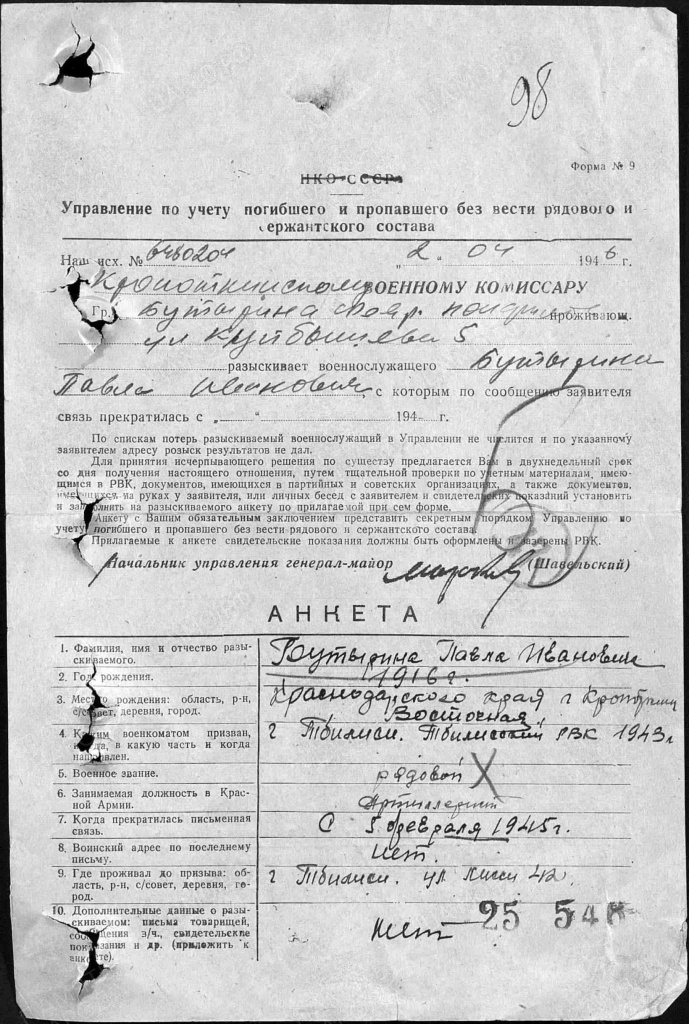 98
Форма № 9
НКО СССР
Управление по учету погибшего и пропавшего без вести рядового и
сержантского состава
Наш исх. № 6480204 „2“ 04 1946 г.
Кропоткинскому ВОЕННОМУ КОМИССАРУ
Гр. Бутырина проживающ.
ул Куйбышева 5
разыскивает военнослужащего Бутырина
Павла Ивановича, с которым по сообщению заявителя
связь прекратилась с „ “ 194 г.
По спискам потерь разыскиваемый военнослужащий в Управлении не числится и по указанному
заявителем адресу розыск результатов не дал.
Для принятия исчерпывающего решения по существу предлагается Вам в двухнедельный срок
со дня получения настоящего отношения, путем тщательной проверки по учетным материалам, имею-
щимся в РВК, документов, имеющихся в партийных и советских организациях, а также документов,
имеющихся на руках у заявителя, или личных бесед с заявителем и свидетельских показаний установить
и заполнить на разыскиваемого анкету по прилагаемой при сем форме.
Анкету с Вашим обязательным заключением представить секретным порядком Управлению по
учету погибшего и пропавшего без вести рядового и сержантского состава.
Прилагаемые к анкете свидетельские показания должны быть оформлены и заверены РВК.
Начальник управления генерал-майор (Шавельский)
АНКЕТА
1. Фамилия, имя и отчество разы-
скиваемого.
Бутырина Павла Ивановича
2. Год рождения.
1916 г.
3. Место рождения: область, р-н,
с/совет, деревня, город.
Краснодарского края г Кропоткин
Восточная
4. Каким военкоматом призван,
когда, в какую часть и когда
направлен.
г Тбилиси. Тбилисский РВК 1943 г
5. Военное звание.
рядовой
6. Занимаемая должность в Крас-
ной Армии.
Артиллерист
7. Когда прекратилась письменная
связь.
С 5 февраля 1945 г.
8. Воинский адрес по последнему
письму.
Нет.
9. Где проживал до призыва: об-
ласть, р-н, с/совет, деревня, го-
род.
г Тбилиси. ул 42
10. Дополнительные данные о разы-
скиваемом: письма товарищей,
сообщения в/ч., свидетельские
показания и др. (приложить к
анкете).
Нет
25 548